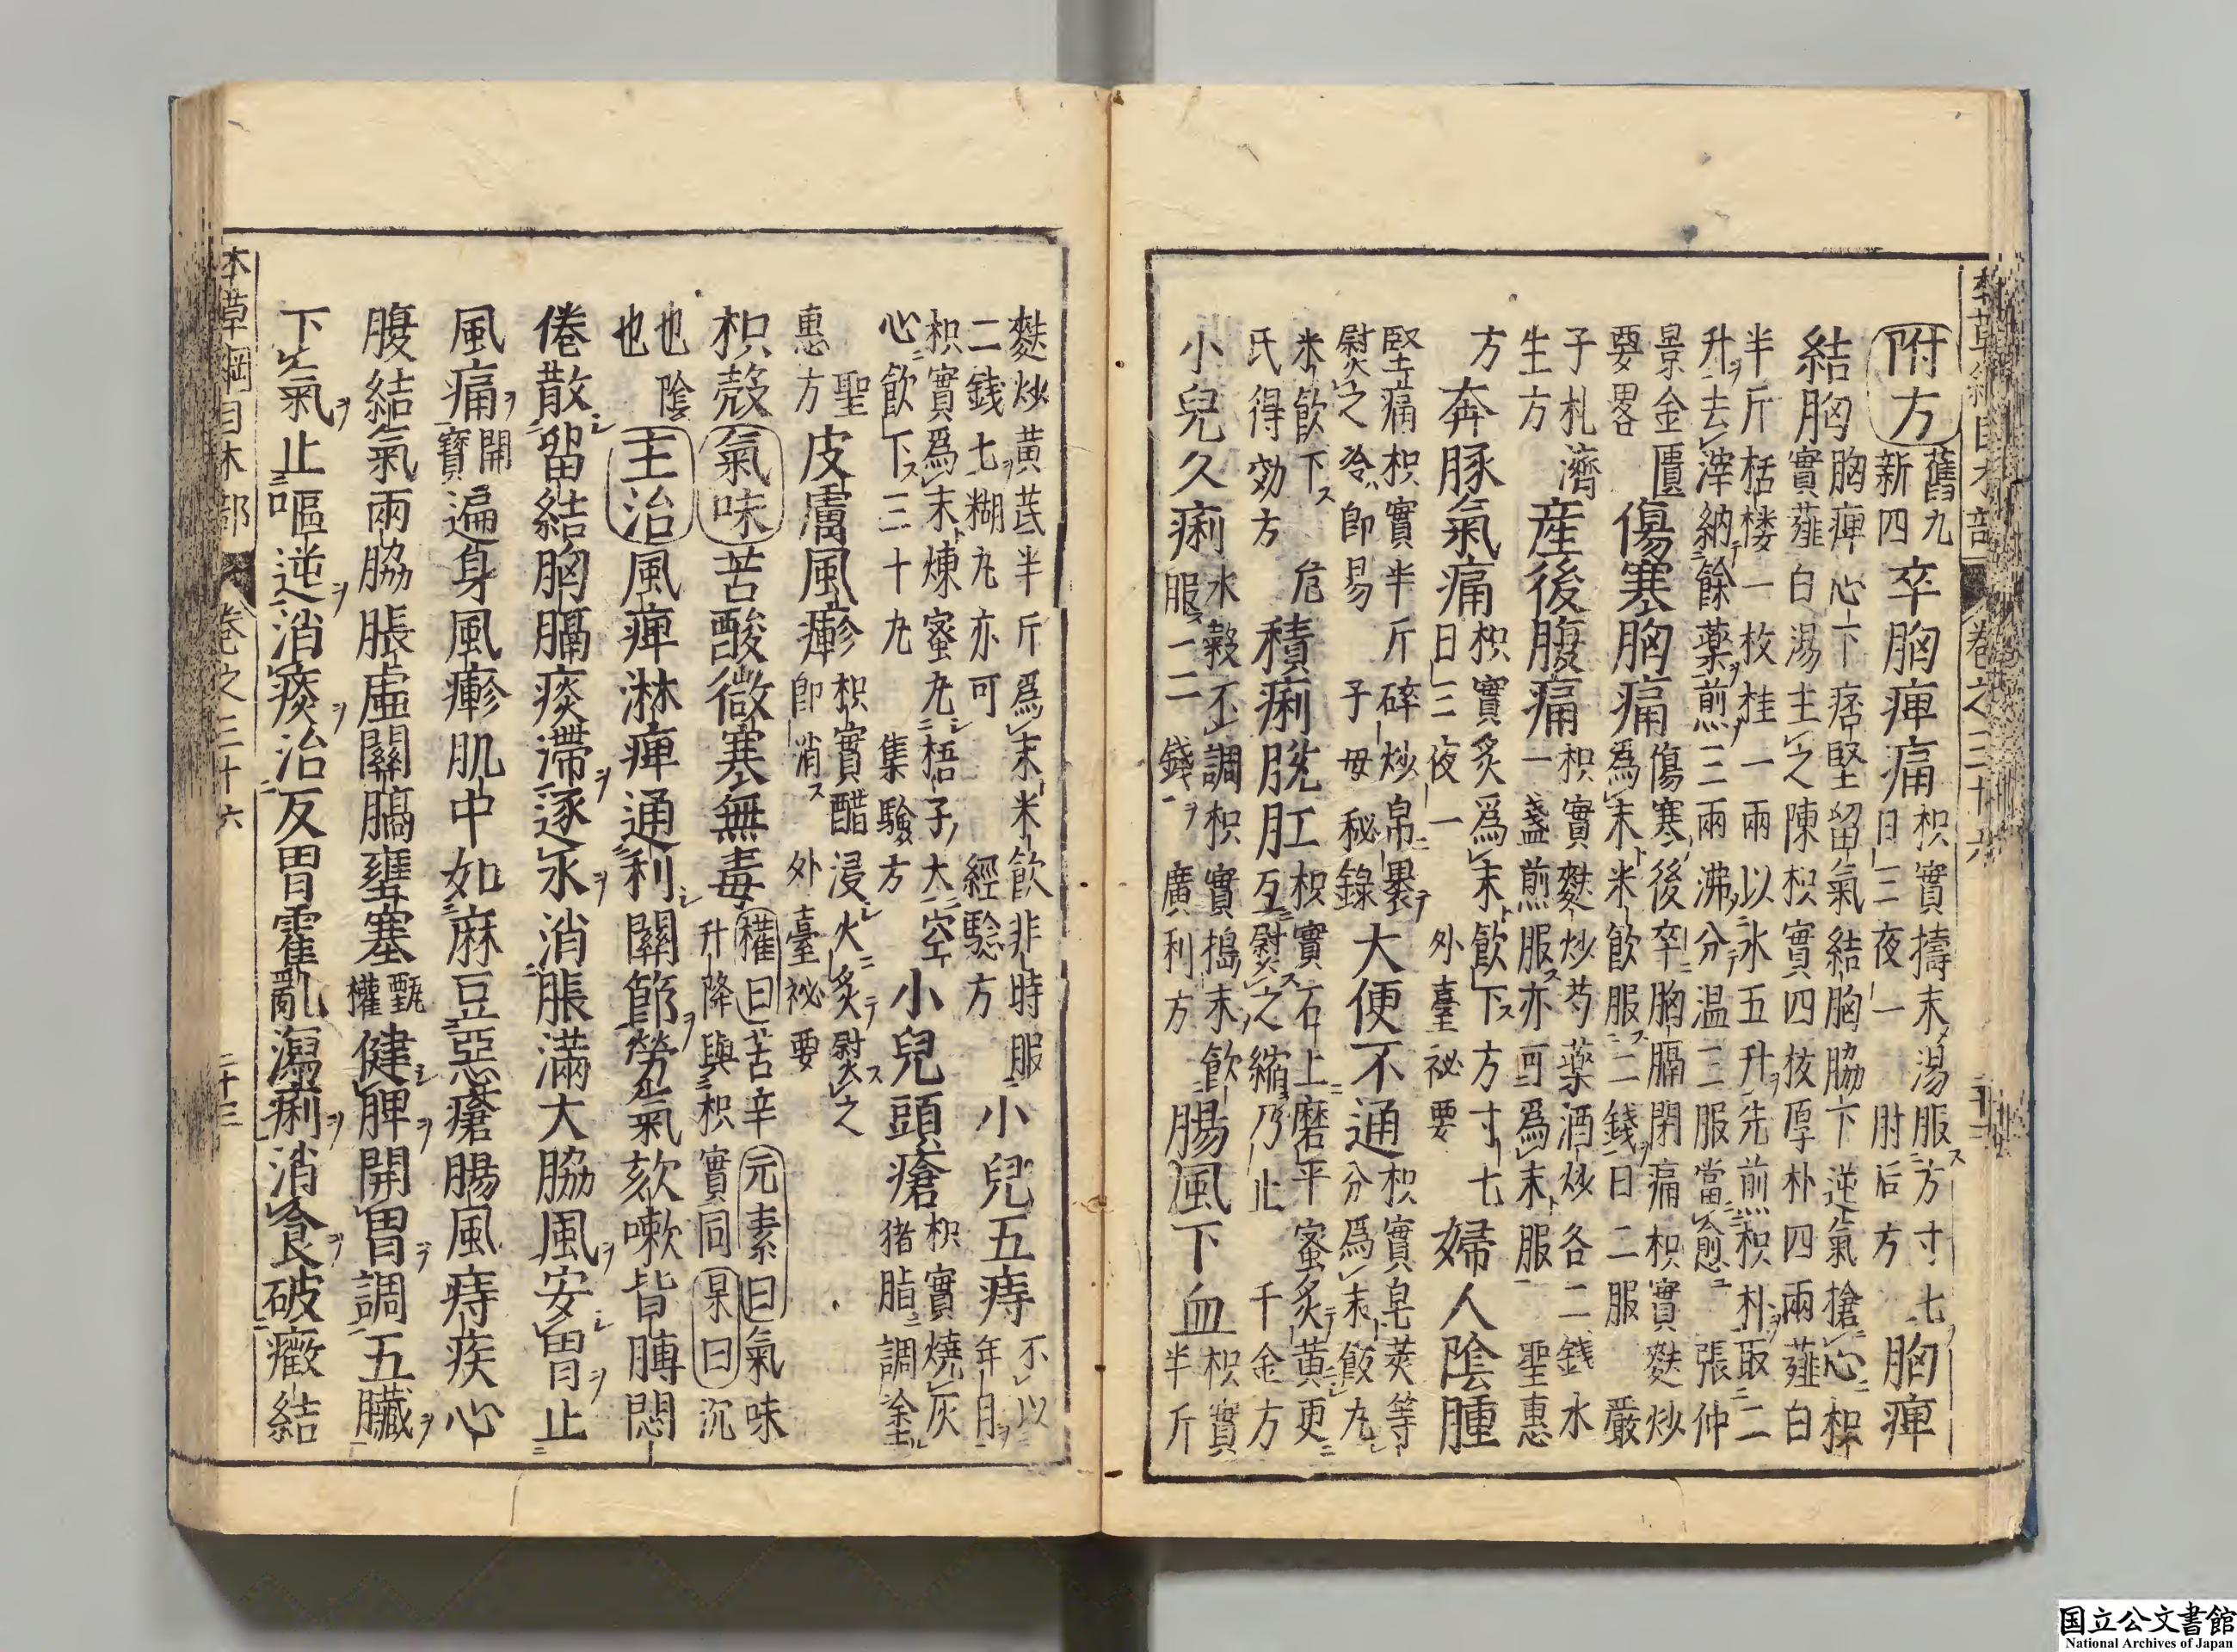 本草綱目木部 卷之三十六
附方 舊九新四 卒胸痺痛 枳實擣末湯服方寸七日三夜一 肘后方 胸痺
結胸 胸痺心下痞堅留氣結胸脇下逆氣搶心枳實薤白湯主之陳枳實四枚厚朴四兩薤白
半斤栝楼一枚桂一兩以水五升先煎枳朴取二升去滓納餘薬煎三兩沸分温三服當愈 張仲
景金匱要畧 傷寒胸痛 傷寒後卒胸膈閉痛枳實麩炒爲末米飲服二錢日二服 嚴
子札濟生方 産後腹痛 枳實麩炒芍薬酒炒各二錢水一盞煎服亦可爲末服 聖惠
方 奔豚氣痛 枳實炙爲末飲下方寸七日三夜一 外臺祕要 婦人陰腫
堅痛 枳實半斤碎炒帛裹熨之冷即易 子母秘録 大便不通 枳實皂莢等分爲末飯丸
米飲下 危氏得効方 積痢脱肛 枳實石上磨平蜜炙黄更互熨之縮乃止 千金方
小兒久痢 水穀不調枳實搗末飲服一二錢 廣利方 腸風下血 枳實半斤
麩炒黄芪半斤爲末米飲非時服二錢七糊丸亦可 經驗方 小兒五痔 不以年月
枳實爲末煉蜜丸梧子大空心飲下三十丸 集驗方 小兒頭瘡 枳實燒灰猪脂調塗
聖惠方 皮膚風㾦 枳實醋浸火炙熨之即消 外臺祕要
枳殼 氣味 苦酸微寒無毒 權曰苦辛 元素曰氣味升降與枳實同 杲曰沉
也陰也 主治 風痺淋痺通利關節勞氣欬嗽皆膊悶
倦散留結胸膈痰滯逐水消脹滿大脇風安胃止
風痛 開寳 遍身風㾦肌中如麻豆惡瘡腸風痔疾心
腹結氣兩脇脹虚關膈壅塞 甄權 健脾開胃調五臟
下氣止嘔逆消痰治反胃霍亂瀉痢消食破癥結
本草綱目木部 卷之三十六 二十三
国立公文書館
National Archives of Japan